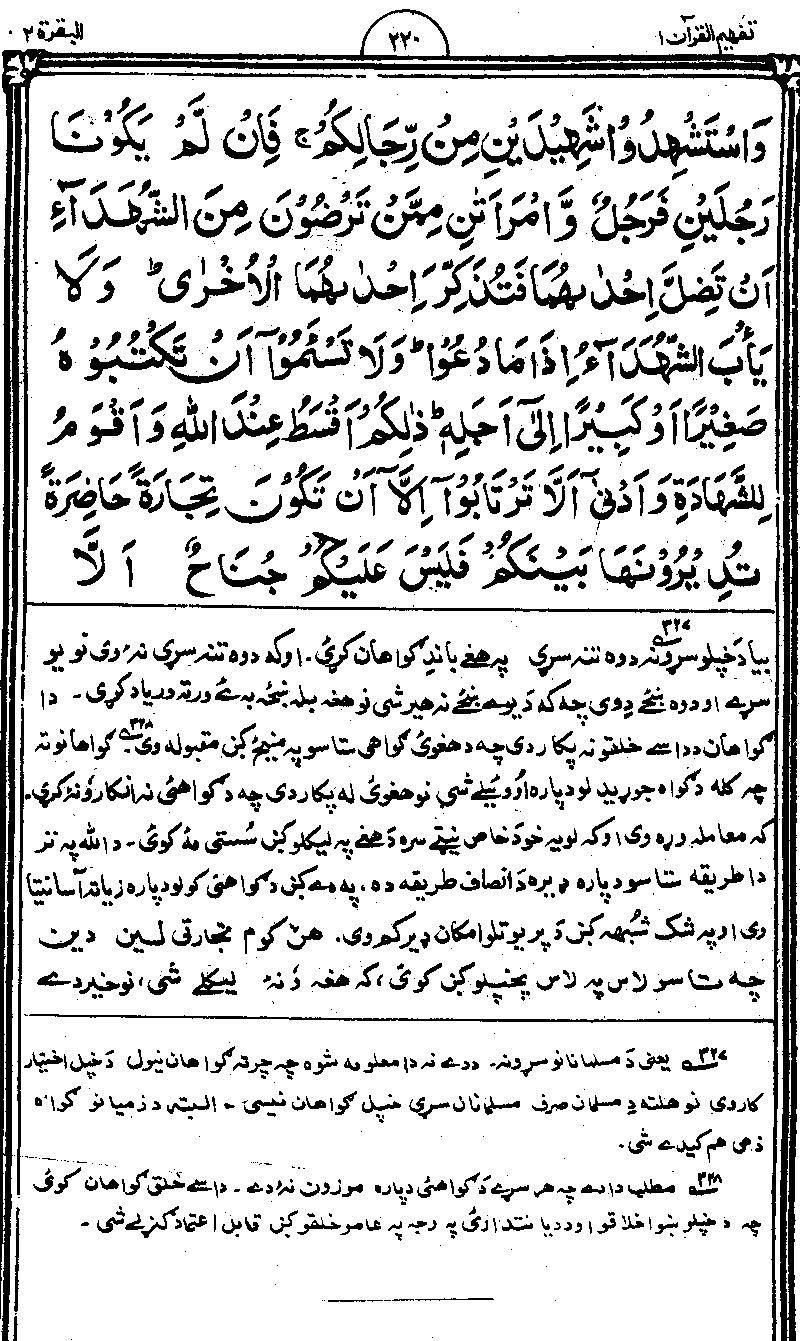 تفهيم القرآن ۱
۲۲۰
البقرة ۲
وَاسْتَشْهِدُوْا شَهِيْدَيْنِ مِنْ رِّجَالِكُمْ ۚ فَاِنْ لَّمْ يَكُوْنَا
رَجُلَيْنِ فَرَجُلٌ وَّامْرَاَتٰنِ مِمَّنْ تَرْضَوْنَ مِنَ الشُّهَدَآءِ
اَنْ تَضِلَّ اِحْدٰىهُمَا فَتُذَكِّرَ اِحْدٰىهُمَا الْاُخْرٰى ؕ وَلَا
يَاْبَ الشُّهَدَآءُ اِذَا مَا دُعُوْا ؕ وَلَا تَسْـَٔمُوْۤا اَنْ تَكْتُبُوْهُ
صَغِيْرًا اَوْ كَبِيْرًا اِلٰٓى اَجَلِهٖ ؕ ذٰلِكُمْ اَقْسَطُ عِنْدَ اللّٰهِ وَاَقْوَمُ
لِلشَّهَادَةِ وَاَدْنٰٓى اَلَّا تَرْتَابُوْۤا اِلَّاۤ اَنْ تَكُوْنَ تِجَارَةً حَاضِرَةً
تُدِيْرُوْنَهَا بَيْنَكُمْ فَلَيْسَ عَلَيْكُمْ جُنَاحٌ اَلَّا
بیا دَخپلو سړونه ۳۲۷ دوه تنه سړی په هغے باندِ گواهان کړئ. اوکه دوه تنه سړی نهٔ وی نو یو
سړے او دوه ښځے دِوی چه که دَیوے ښځے نه هیر شی نو هغه بله ښځه به ئے ورته دریاد کړی ـ دا
گواهان دداسے خلقو نه پکار دی چه دهغوئ گواهی ستاسو په مینځ کښ مقبوله وی ۳۲۸ گواهانو ته
چه کله دَگواه جوړیدلو دپاره اُووئیلے شی نو هغوئ له پکار دی چه دَگواهئ نه انکار ونهٔ کړی.
که معامله وړه وی اوکه لویه خو دَخاص نیټے سره دَهغے په لیکلو کښ سُستی مهٔ کوئ ـ دالله په نزد
دا طریقه ستاسو دپاره ډیره دَ انصاف طریقه ده، په دے کښ دگواهئ کولو دپاره زیاته آسانتیا
وی او په شک شُبهه کښ دَپریوتلو امکان ډیر کم وی. هن کوم تجارتی لین دین
چه تاسو لاس په لاس پخپلو کښ کوئ، که هغه ونهٔ لیکلے شی، نو خیر دے
۳۲۷ یعنی دَ مسلمانانو سړونه. ددے نه دا معلومه شوه چه چرته گواهان نیول دَخپل اختیار
کار وی نو هلته دِ مسلمان صرف مسلمانان سړی خپل گواهان نیسی ـ البته د ذمیانو گواه
ذمی هم کیدے شی.
۳۲۸ مطلب دا دے چه هر سړے دَگواهئ دپاره موزون نهٔ دے ـ داسے خلق گواهان کوئ
چه دخپلو ښو اخلاقو او ددیانتدارئ په وجه په عامو خلقو کښ قابل اعتماد گنړلے شی ـ